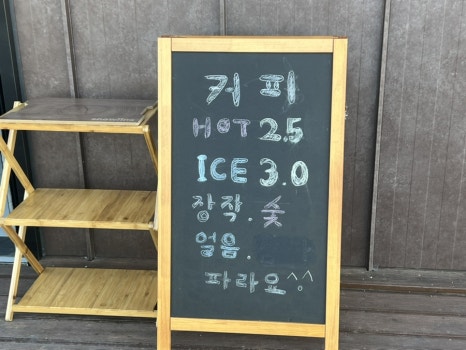 커피
HOT 2.5
ICE 3.0
장작. 숯
얼음.
파라요^^